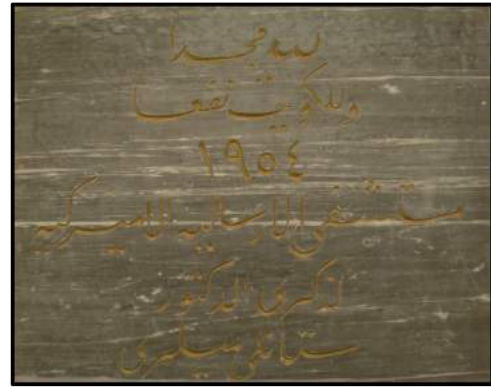 لله مجدا
وللكويت نفعا
١٩٥٤
مستشفى الارسالية الاميركية
لذكرى الدكتور
ستانلي ميلري